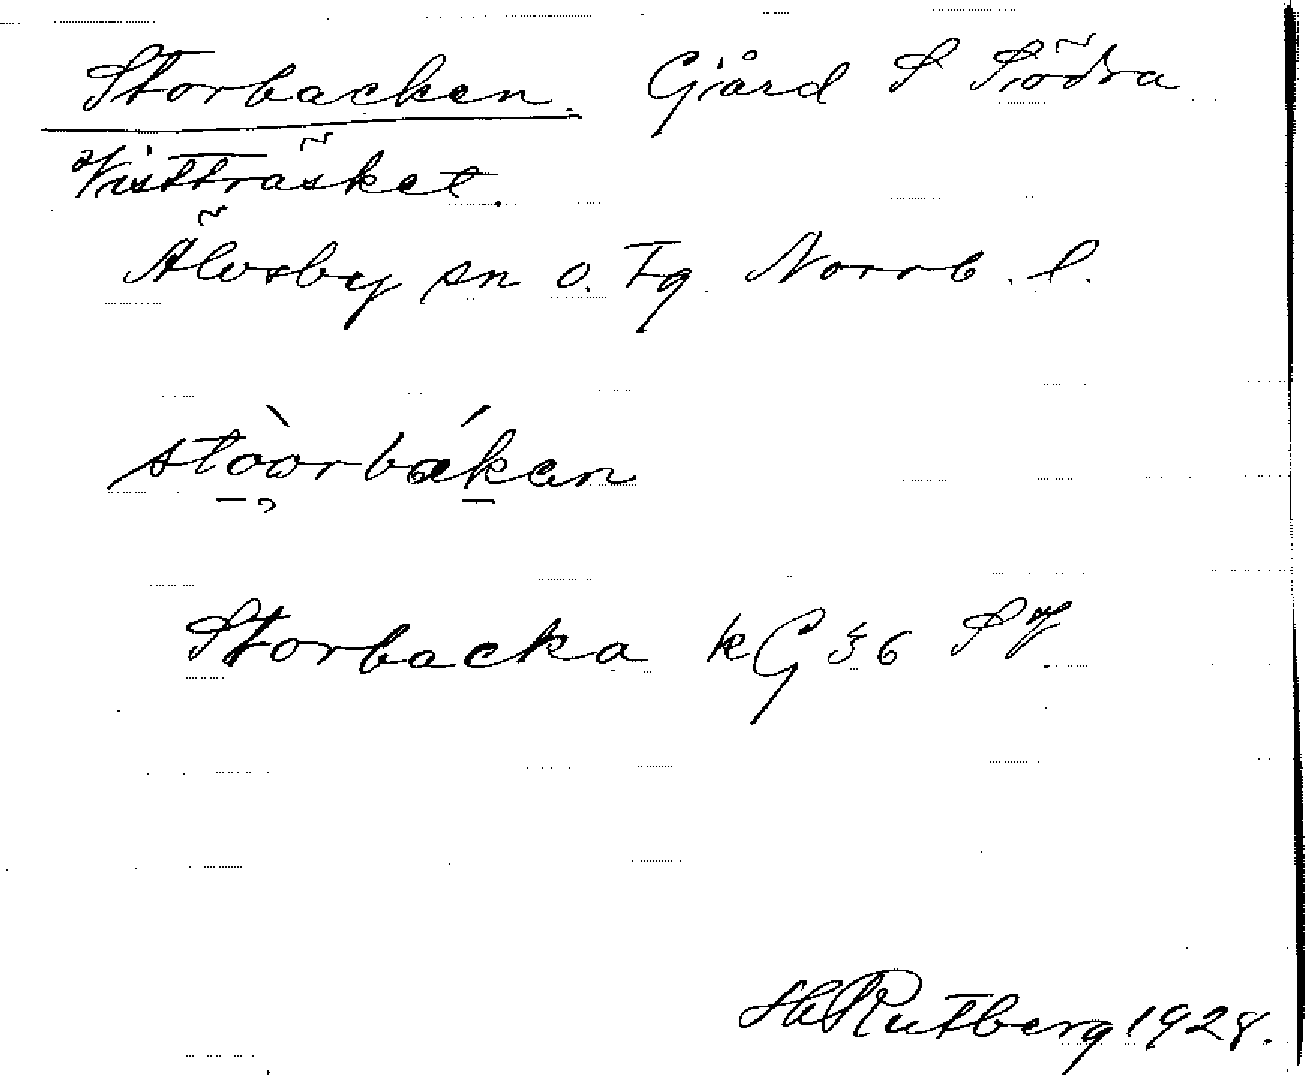 Storbacken. Gård S Södra
Vistträsket.
Älvsby sn o. Tg. Norrb. l.
stòorbáken
Storbacka kG 36 SV.
HRutberg 1928.